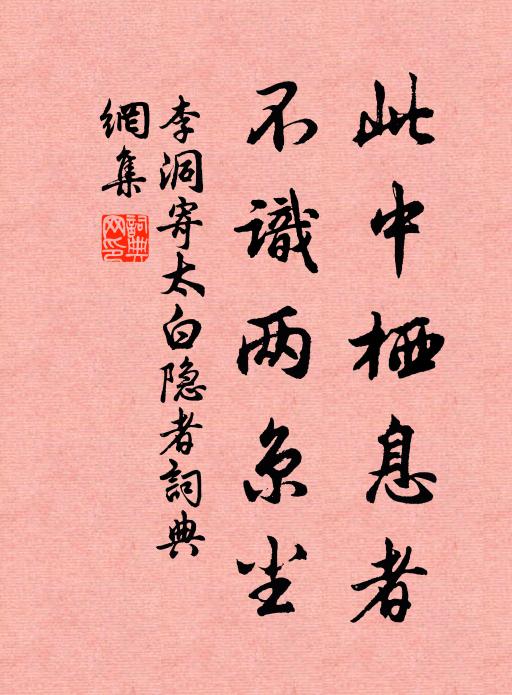 此中栖息者
不識两京尘
李洞寄太白隐者詞典
網集
詞典网印